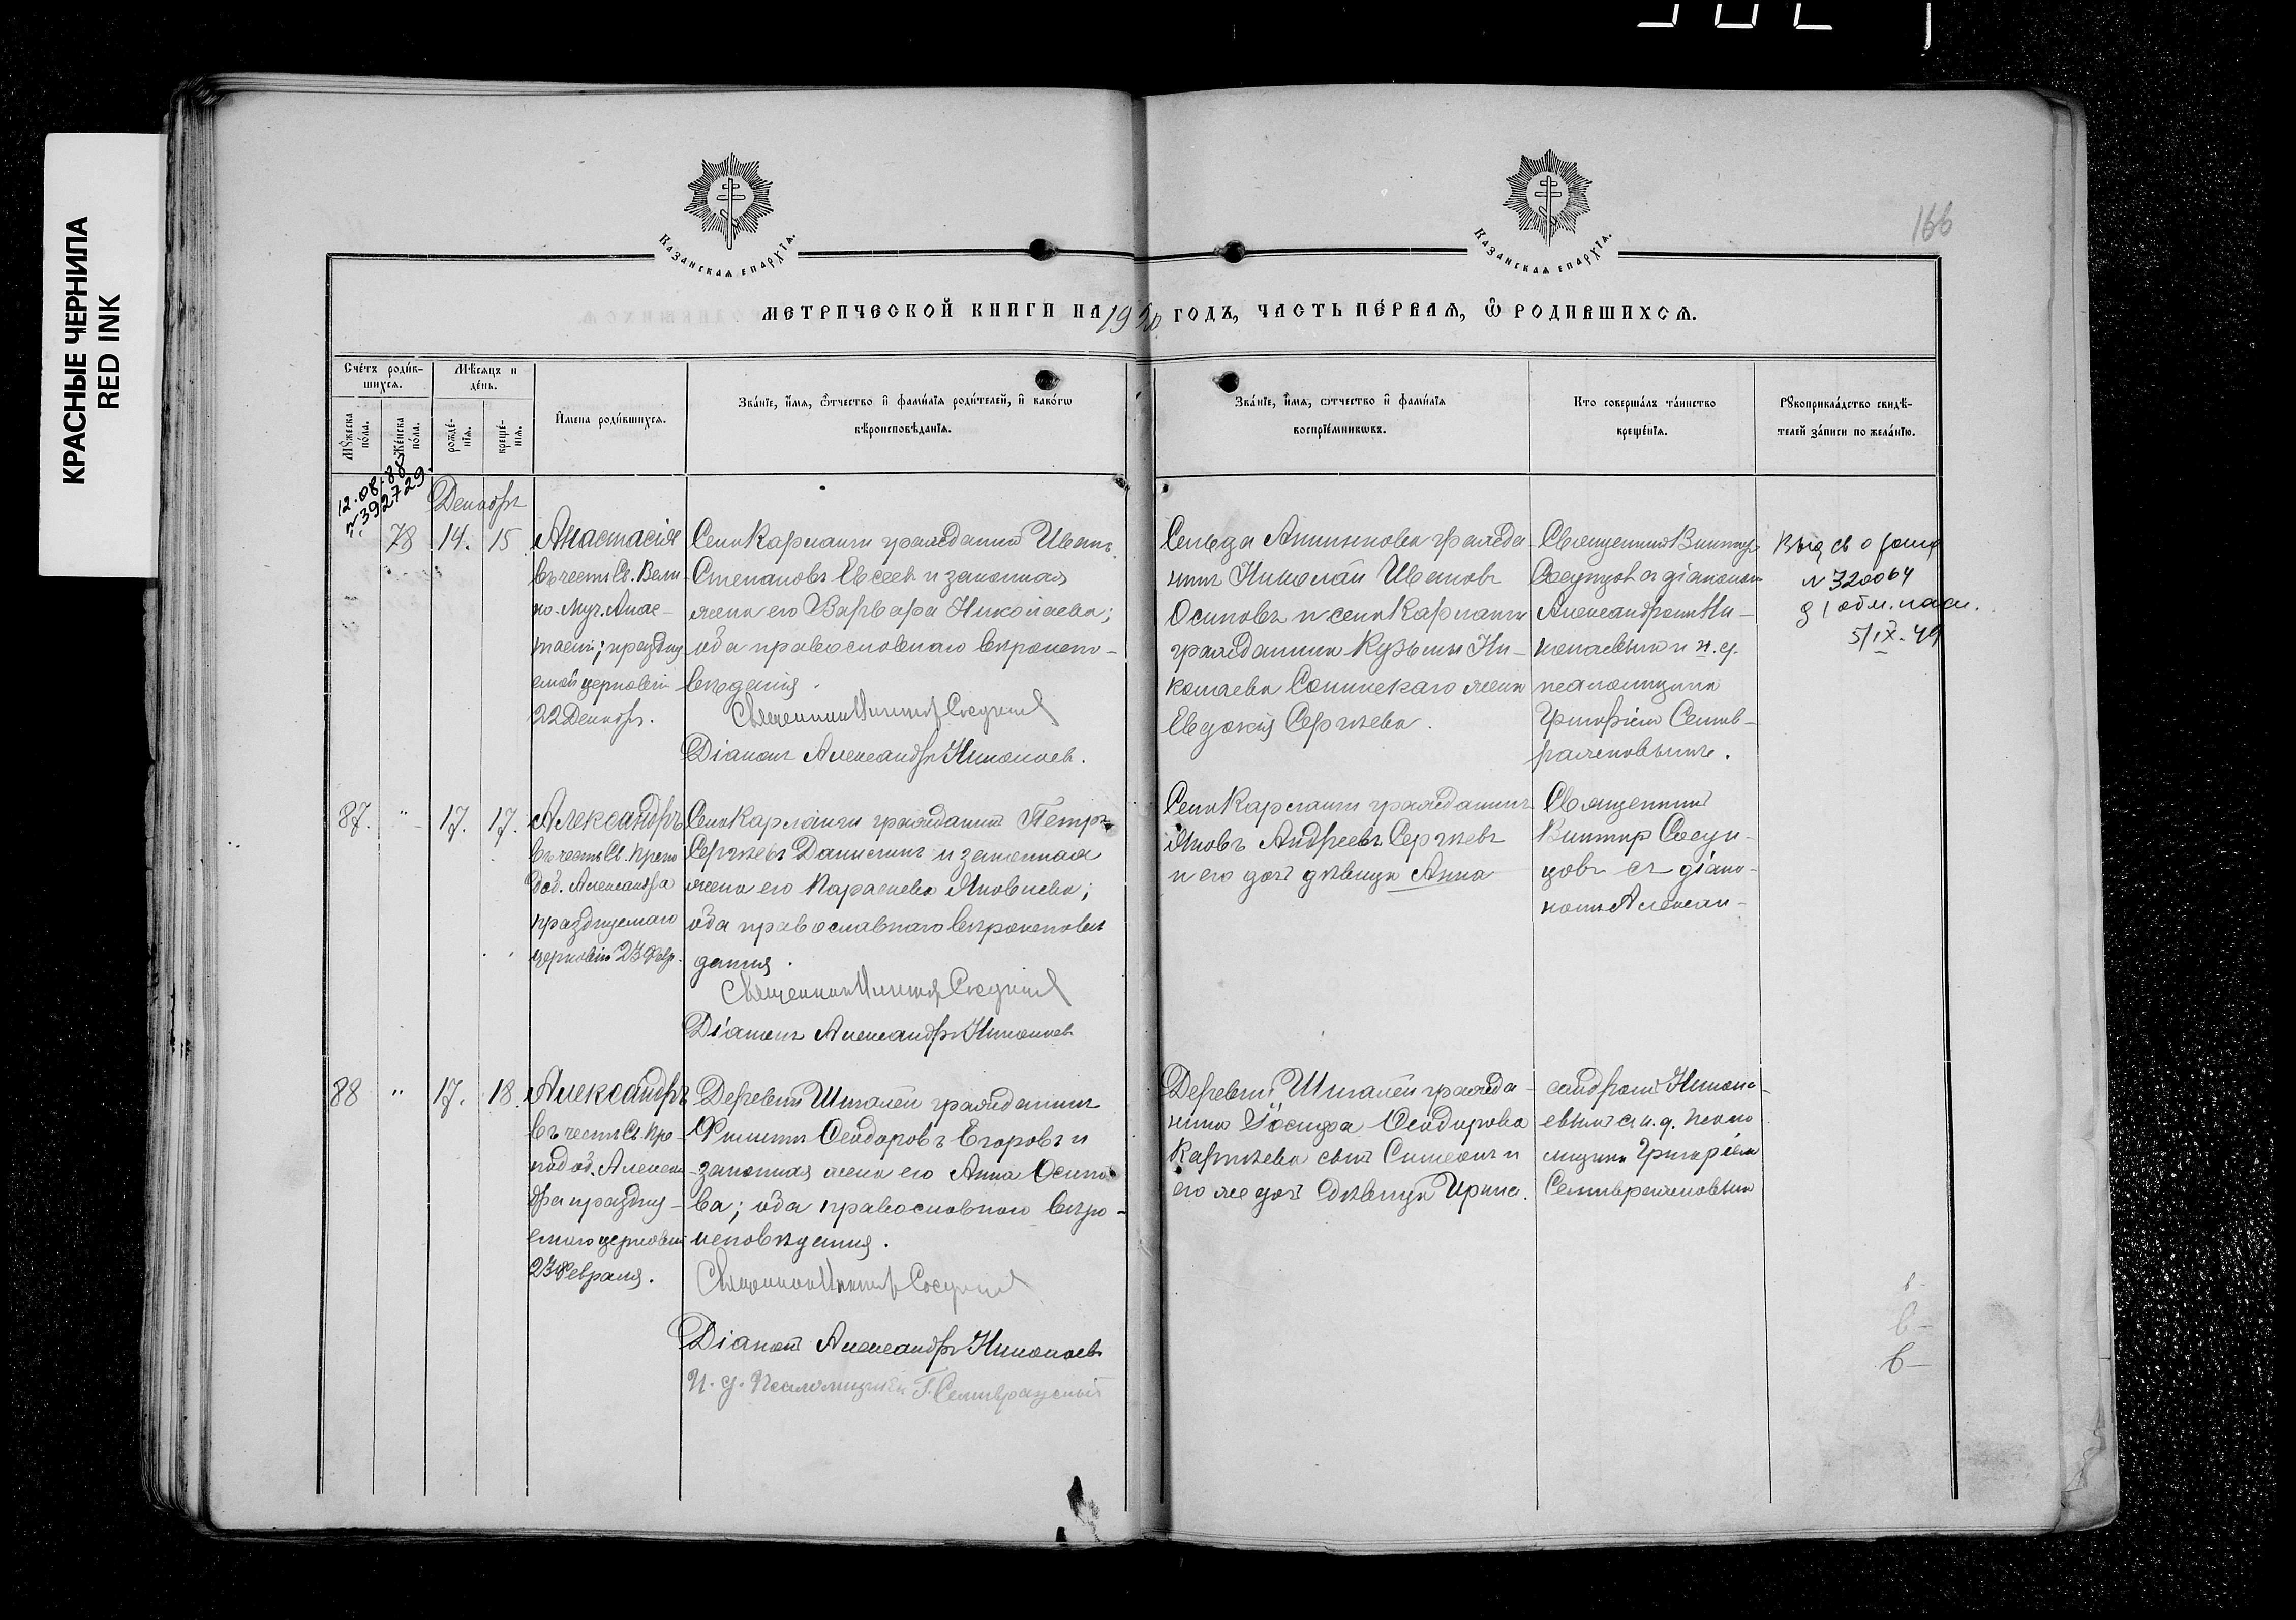 КРАСНЫЕ ЧЕРНИЛА
RED INK
166
Казанская епархїя.
Казанская епархїя.
МЕТРИЧЕСКОЙ КНИГИ НА 1920 ГОДЪ, ЧАСТЬ ПЕ́РВАЯ, Ѽ РОДИВШИХСЯ.
Сче́тъ роди́в-
шихся.
Мѣ́сяцъ и
де́нь.
Мꙋ́жеска
по́ла.
Же́нска
по́ла.
рожде́-
нїя.
креще́-
нїя.
И҆мена роди́вшихся.
Зва́нїе, и҆́мя, ѻ҆́тчество и҆ фами́лїѧ роди́телей, и҆ како́гѡ
вѣроисповѣ́данїѧ.
Зва́нїе, и҆́мя, ѻ҆́тчество и҆ фами́лїѧ
воспрїе́мникѡвъ.
Кто соверша́лъ та́инство
креще́нїѧ.
Рꙋкоприкла́дство свидѣ́-
телей за́писи по жела́нїю.
12.08.88
№392729
Декабрь
78 14. 15 Анастасія
въ честь Св. Вели-
ко-Муч. Анас-
тасіи; праздну
емой церковію
22 Декабр.
Села Карлангы гражданинъ Иванъ
Степановъ Евсеевъ и законная
жена его Варвара Николаева;
оба православнаго вѣроиспо-
вѣданія.
Священникъ Викторъ Сосунцовъ
Діаконъ Александръ Николаевъ.
гражда-
нинъ Николай Ивановъ
Осиповъ и села Карланги
гражданина Кузьмы Ни-
колаева жена
Евдокія Сергѣева.
Священникъ Викторъ
Сосунцовъ съ діакономъ
Александромъ Ни-
колаевымъ и и. д.
псаломщика
Григоріемъ Семив-
раженовымъ.
Выд св о рожд
№ 320064
5/IX-49
87. " 17. 17. Александръ
въ честь Св. Препо
доб. Александра
празднуемаго
церковію 23 Февр.
Села Карланги гражданинъ Петръ
Сергѣевъ Данилинъ и законная
жена его Параскева Яковлева;
оба православнаго вѣроисповѣ
данія.
Священникъ Викторъ Сосунцовъ
Діаконъ Александръ Николаевъ
Села Карланги гражданинъ
Яковъ Андреевъ Сергѣевъ
и его дочь дѣвица Анна
Священникъ
Викторъ Сосун-
цовъ съ діако-
номъ Алексан-
88 " 17. 18. Александръ
въ честь Св. Пре-
подоб. Алексан
дра праздну-
емаго церковію
23 Февраля.
Деревни Шигалей гражданинъ
Филиппъ Ѳеодоровъ Егоровъ и
законная жена его Анна Осипо-
ва; оба православного вѣро-
исповѣданія.
Священникъ Викторъ Сосунцовъ
Діаконъ Александръ Николаевъ
И. д. Псаломщика Г. Семивраженый
Деревни Шигалей гражда-
нина Іосифа Ѳеодорова
Каргѣева сынъ Симеонъ и
его же дочь дѣвица Ирина.
сандромъ Никола-
евымъ и и. д. псало
мщика Григоріемъ
Семивраженовымъ